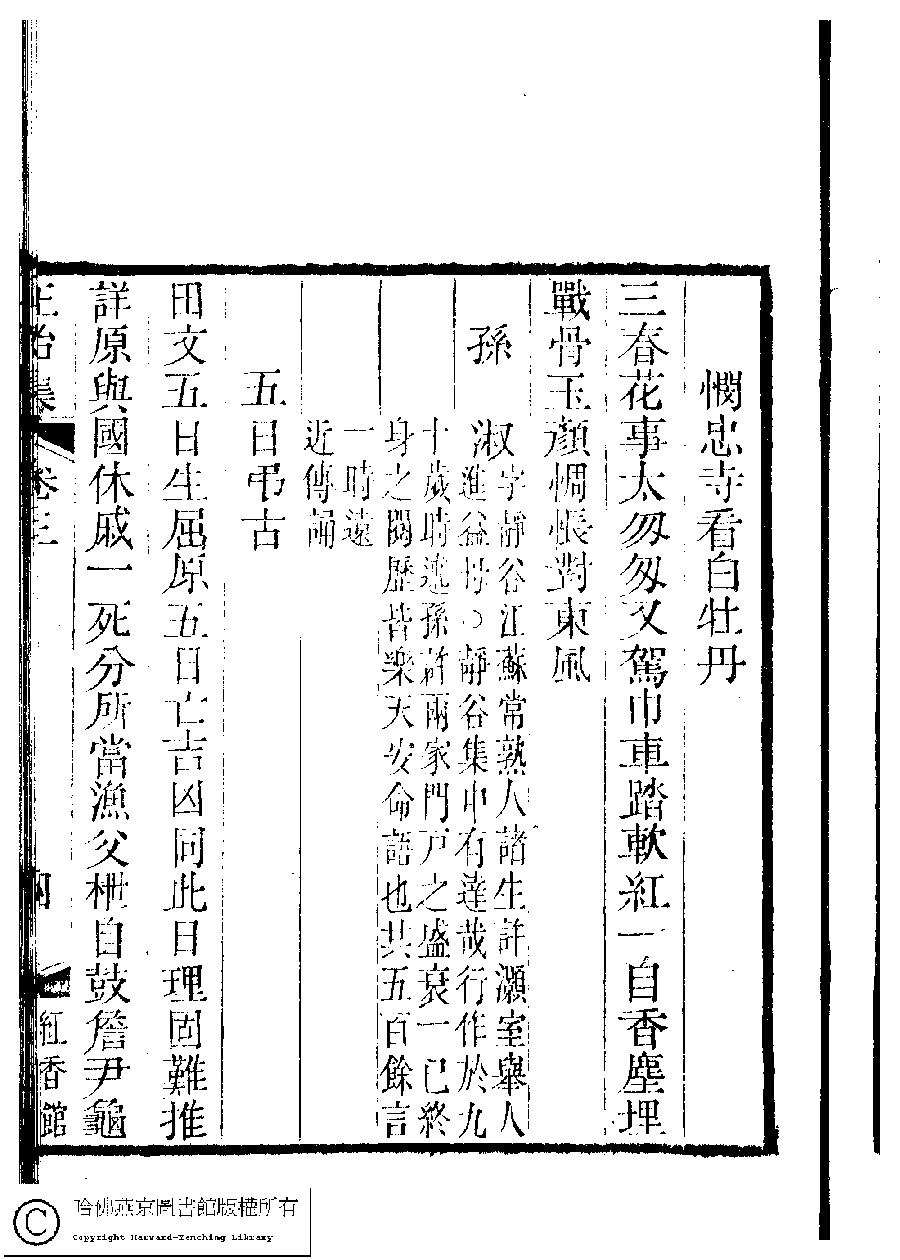 憫忠寺看白牡丹
三春花事太匆匆又駕巾車踏軟紅一自香塵埋
戰骨玉顏惆悵對東風
孫淑
字靜谷江蘇常熟人諸生許灝室舉人
進益母○靜谷集中有達哉行作於九
十歲時述孫許兩家門戸之盛衰一已終
身之閱歷皆樂天安命語也共五百餘言
一時遠
近傳誦
五日弔古
田文五日生屈原五日亡吉凶同此日理固難推
詳原與國休戚一死分所當漁父枻自鼓詹尹龜
正始集 卷三 四 紅香館
哈佛燕京圖書館版權所有
Copyright Harvard-Yenching Library